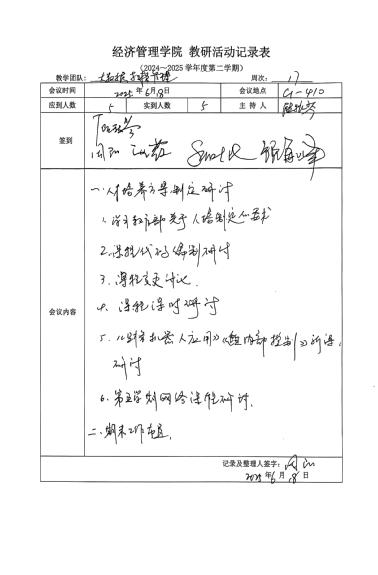 经济管理学院 教研活动记录表
（2024～2025 学年度第二学期）
教学团队： 周次： 17
会议时间 2025年6月18日 会议地点 G-410
应到人数 5 实到人数 5 主 持 人
签到
会议内容
一.人才培养方案制定研讨
1. 学习教育部关于人培制定的要求
2.课程代码编制研讨
3. 课程变更讨论.
4. 课程课时研讨
5.《财务机器人应用》《内部控制》新课
研讨
6. 网络课程研讨.
二.期末工作布置.
记录及整理人签字：
2025年6月18日